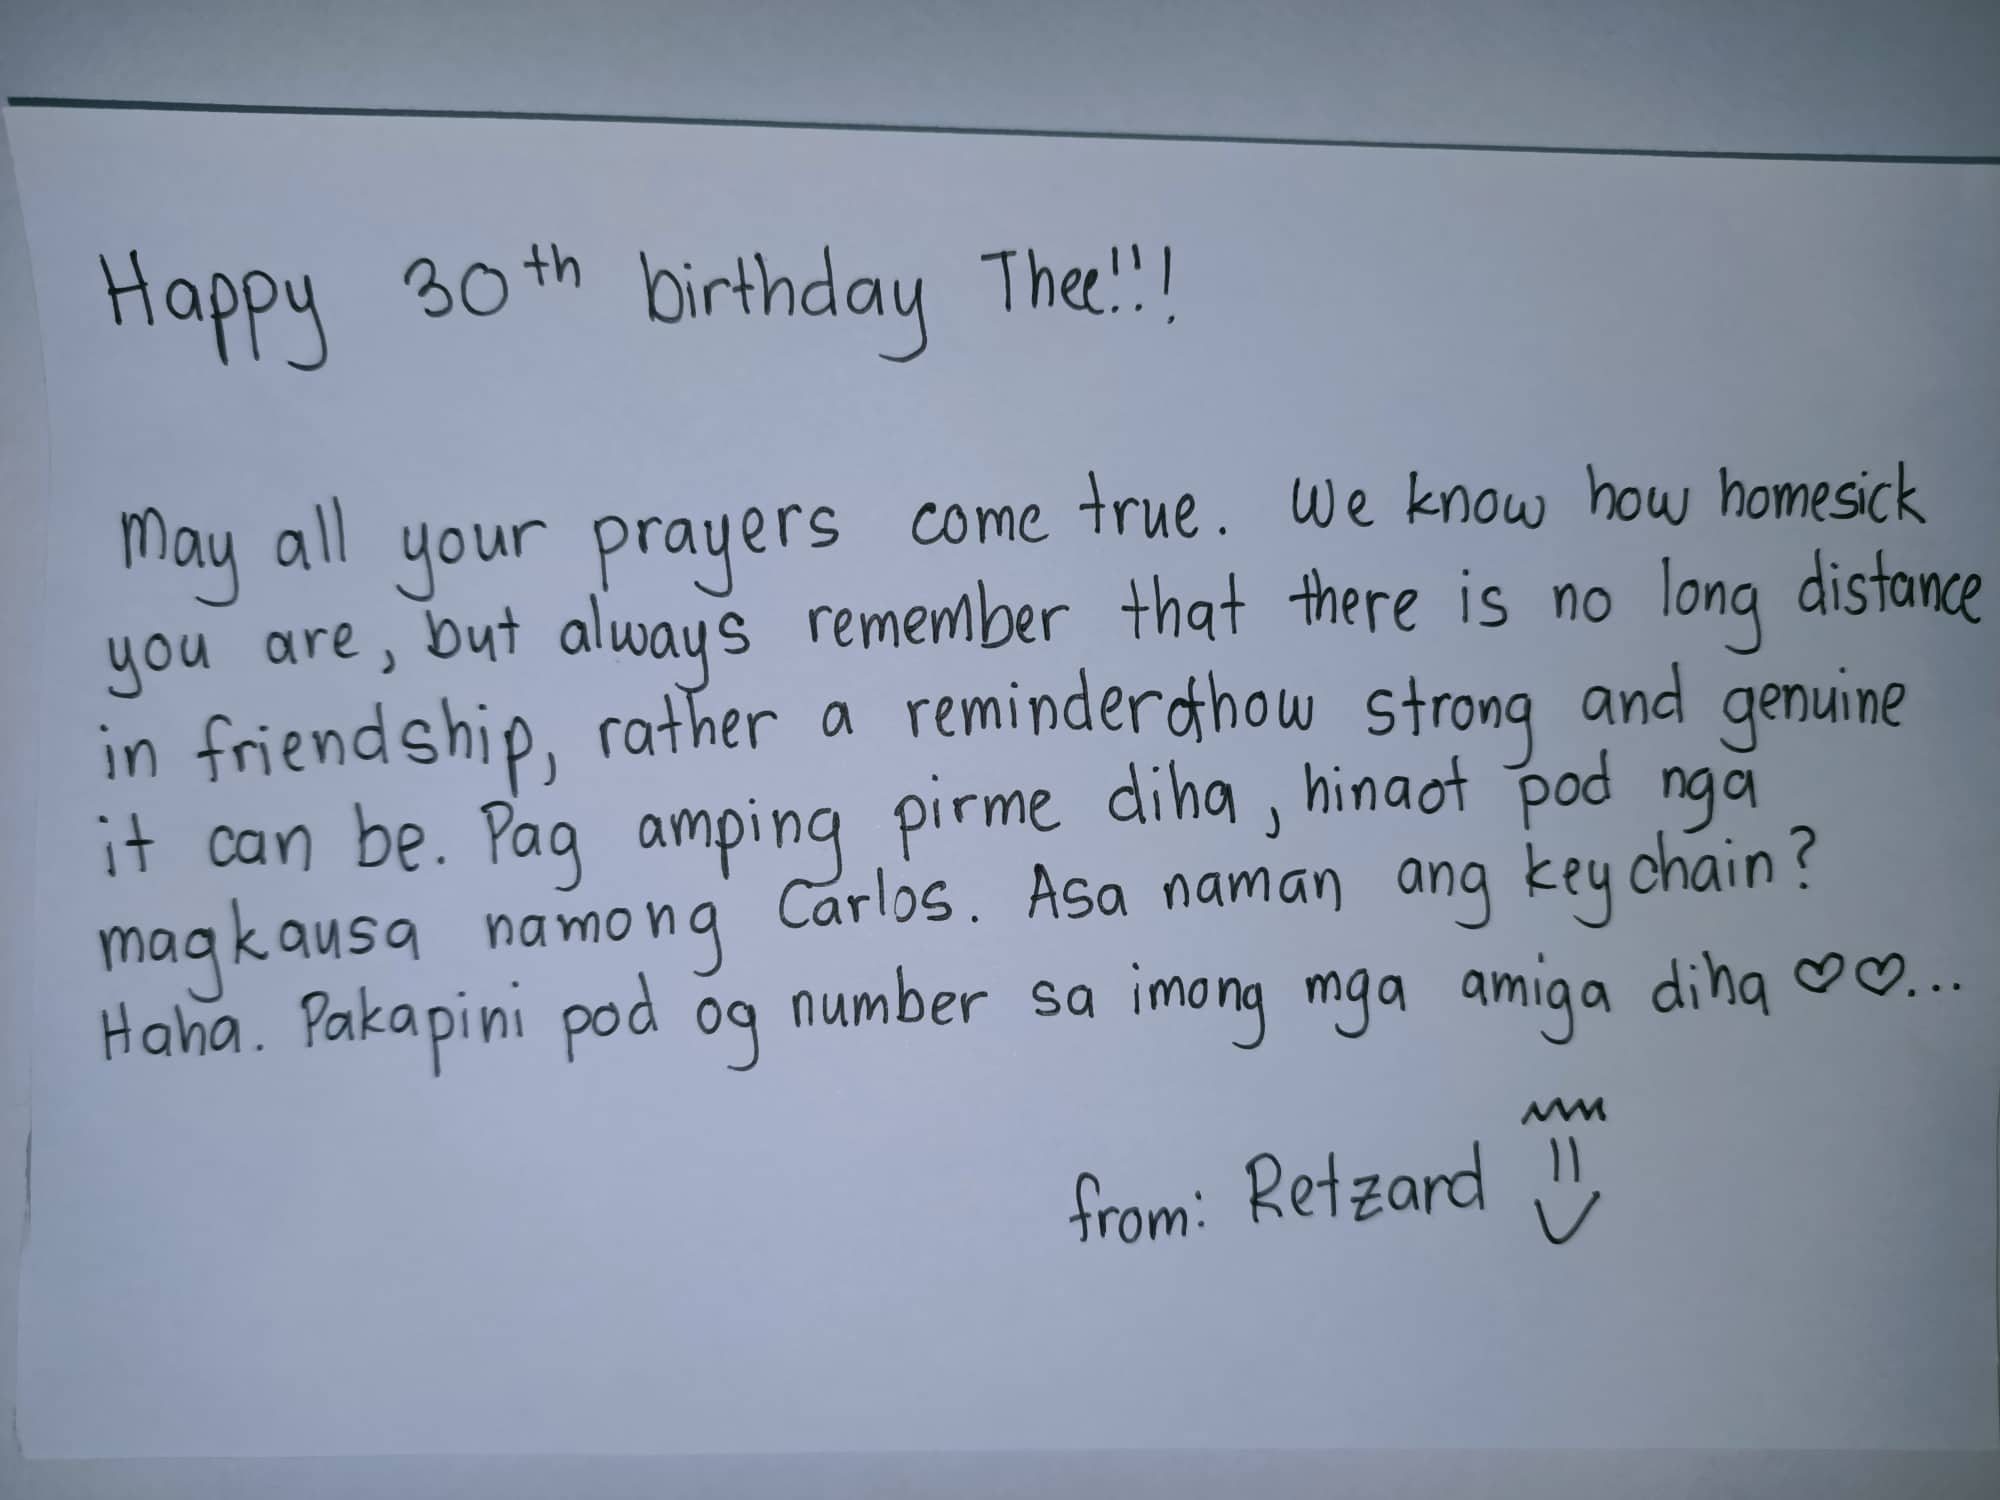 Happy 30th birthday Thee!!!
May all your prayers come true. We know how homesick
you are, but always remember that there is no long distance
in friendship, rather a reminder of how strong and genuine
it can be. Pag amping pirme diha, hinaot pod nga
magkausa namong Carlos. Asa naman ang key chain?
Haha. Pakapini pod og number sa imong mga amiga diha ♡♡...
from: Retzard